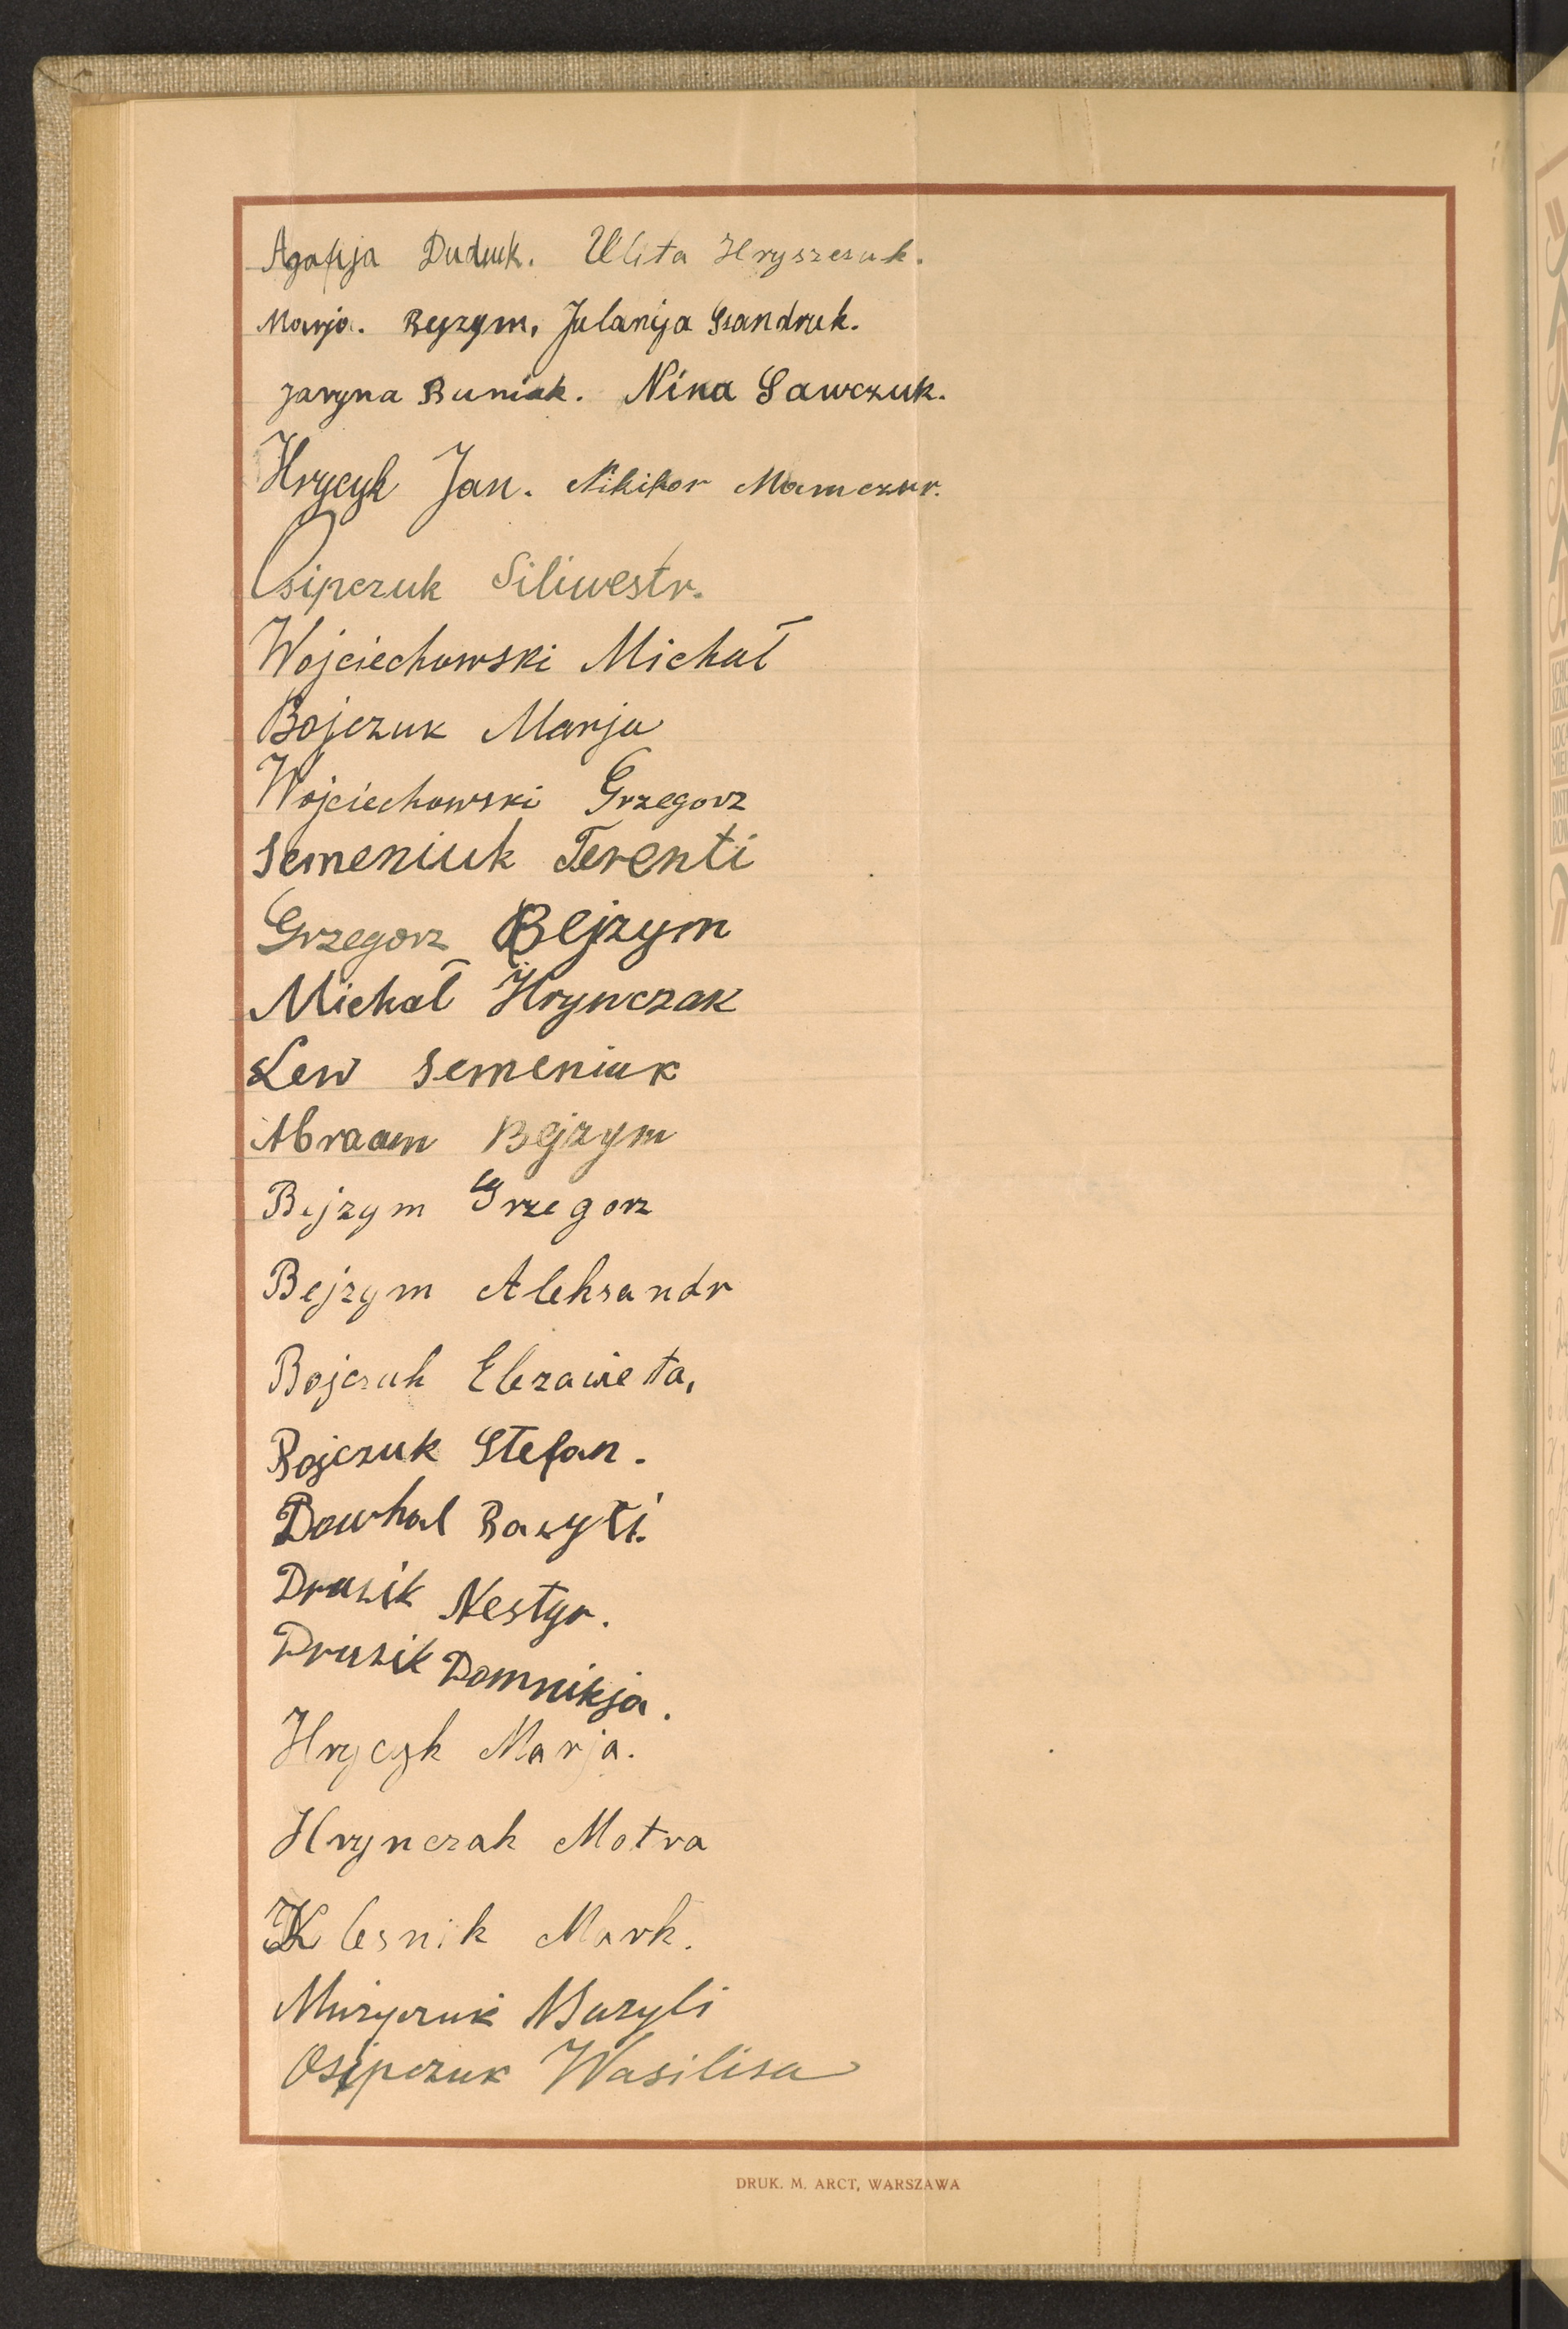 Agafija Duduk. Ulita Hryszczuk.
Marja. Bejzym, Julanija Szandruk.
Jaryna Buniak. Nina Sawczuk.
Hrycyk Jan. Nikifor Mamczur.
Osipczuk Siliwestr.
Wojciechowski Michał
Bojczuk Marja
Wojciechowski Grzegorz
Semeniuk Terenti
Grzegorz Bejzym
Michał Hrynczak
Lew Semeniuk
Abraam Bejzym
Bejzym Grzegorz
Bejzym Aleksandr
Bojczuk Elezawieta,
Bojczuk Stefan.
Dowhal Bazyli.
Druzik Nestyr.
Druzik Domnikja.
Hrycyk Marja.
Hrynczak Motra
Klesnik Mark.
Muzyczuk Bazyli
Osipczuk Wasilisa
DRUK. M. ARCT, WARSZAWA